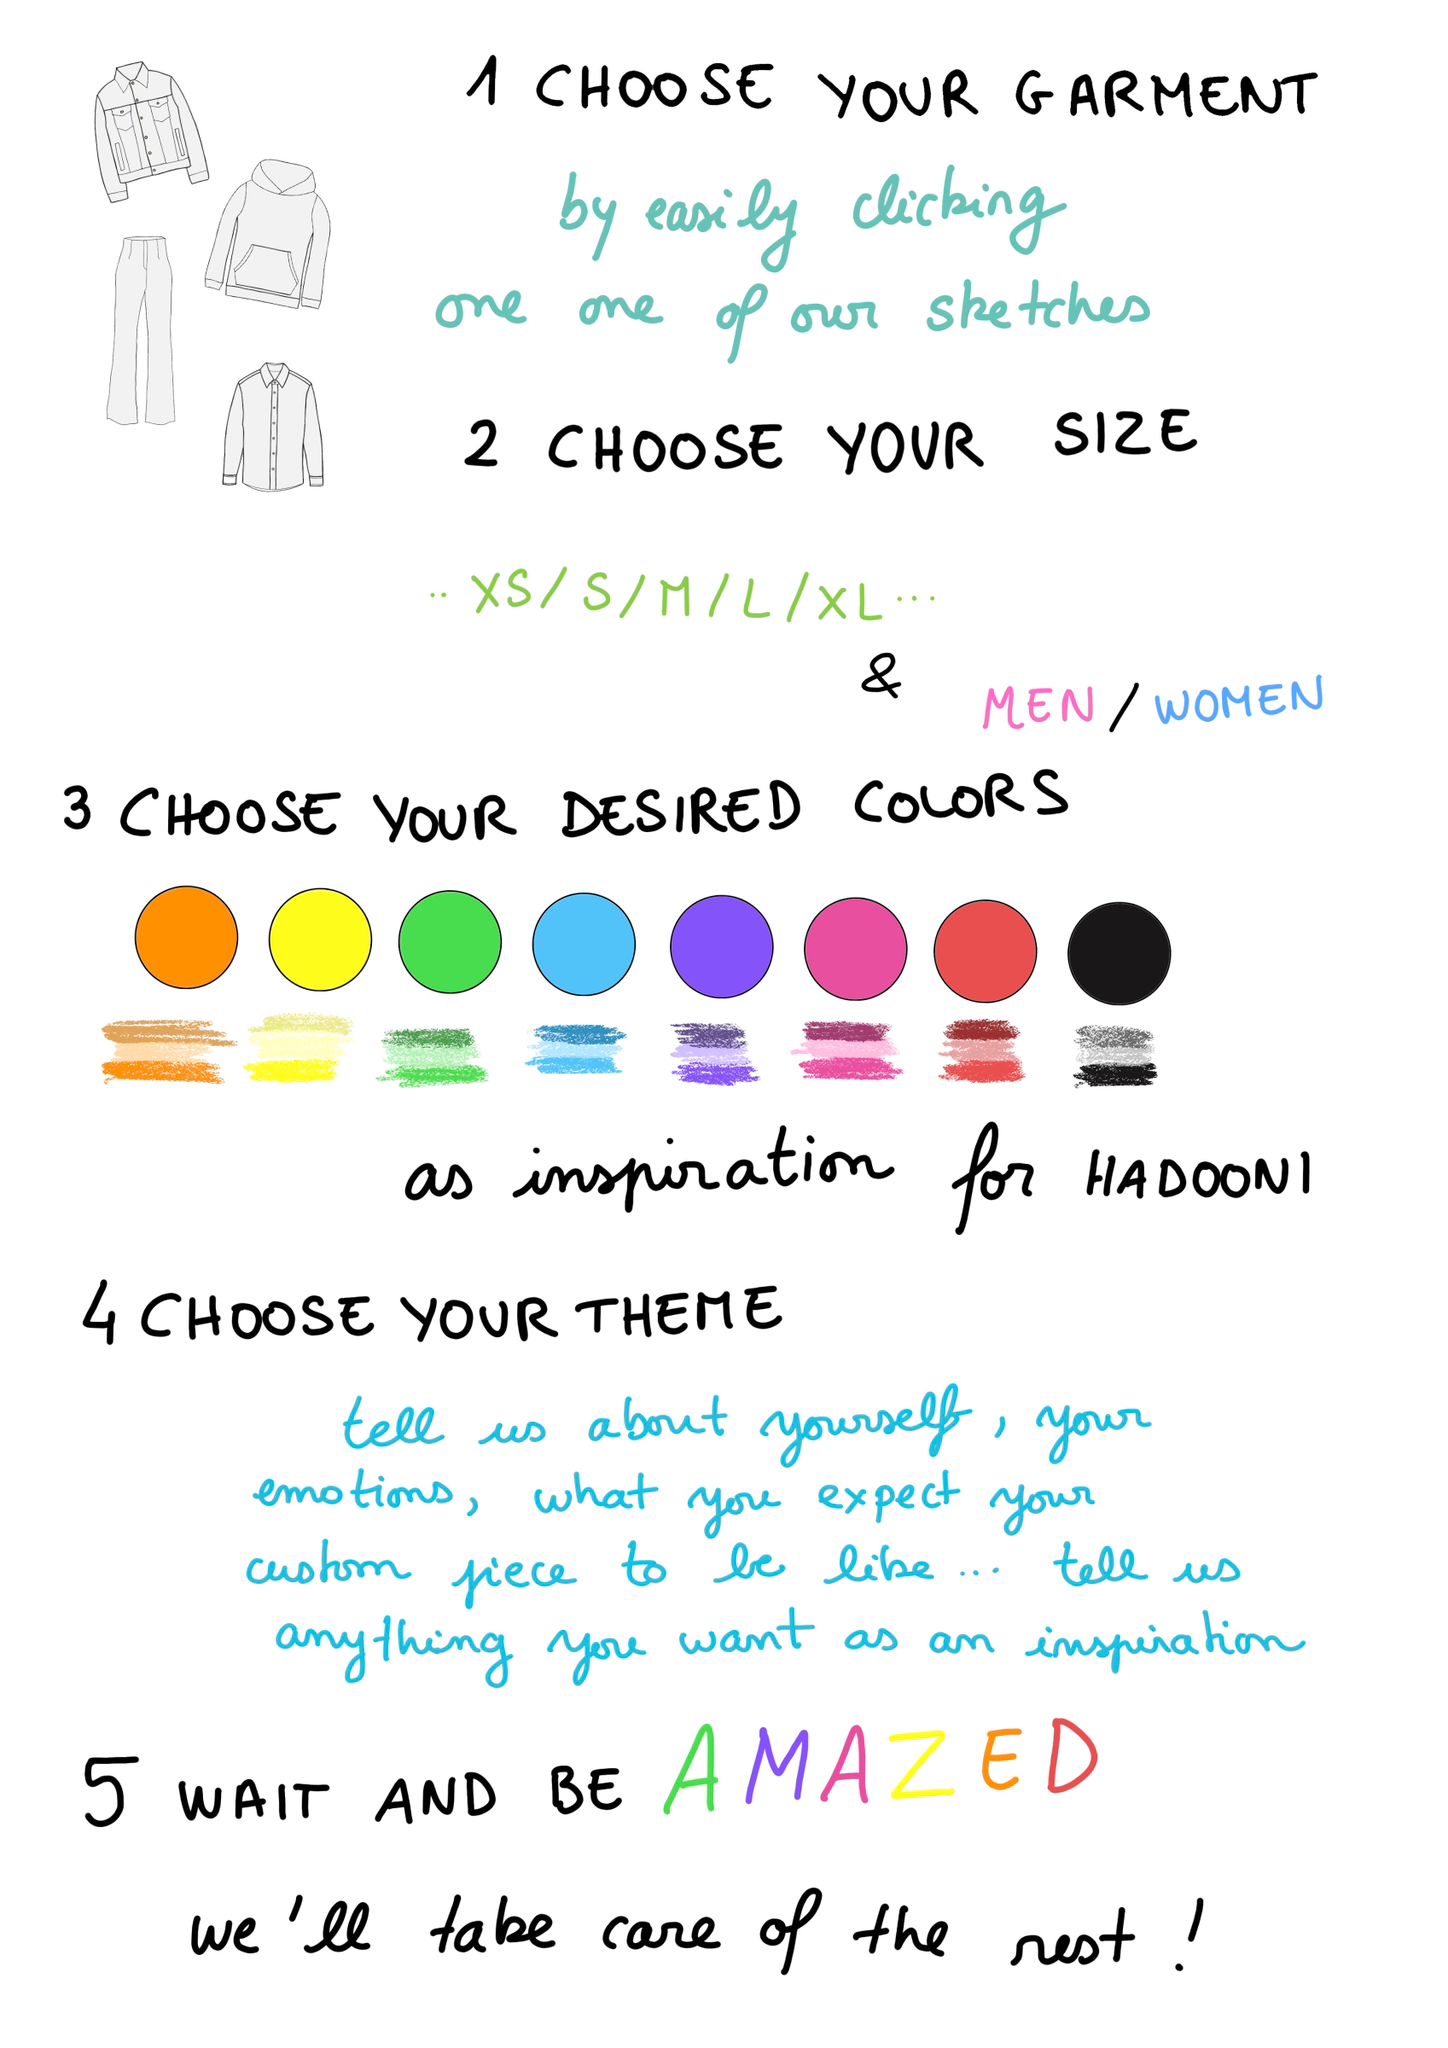 1 CHOOSE YOUR GARMENT
by easily clicking
one one of our sketches
2 CHOOSE YOUR SIZE
.. XS/S/M/L/XL...
&
MEN/WOMEN
3 CHOOSE YOUR DESIRED COLORS
as inspiration for HADOONI
4 CHOOSE YOUR THEME
tell us about yourself, your
emotions, what you expect your
custom piece to be like... tell us
anything you want as an inspiration
5 WAIT AND BE AMAZED
we'll take care of the rest!